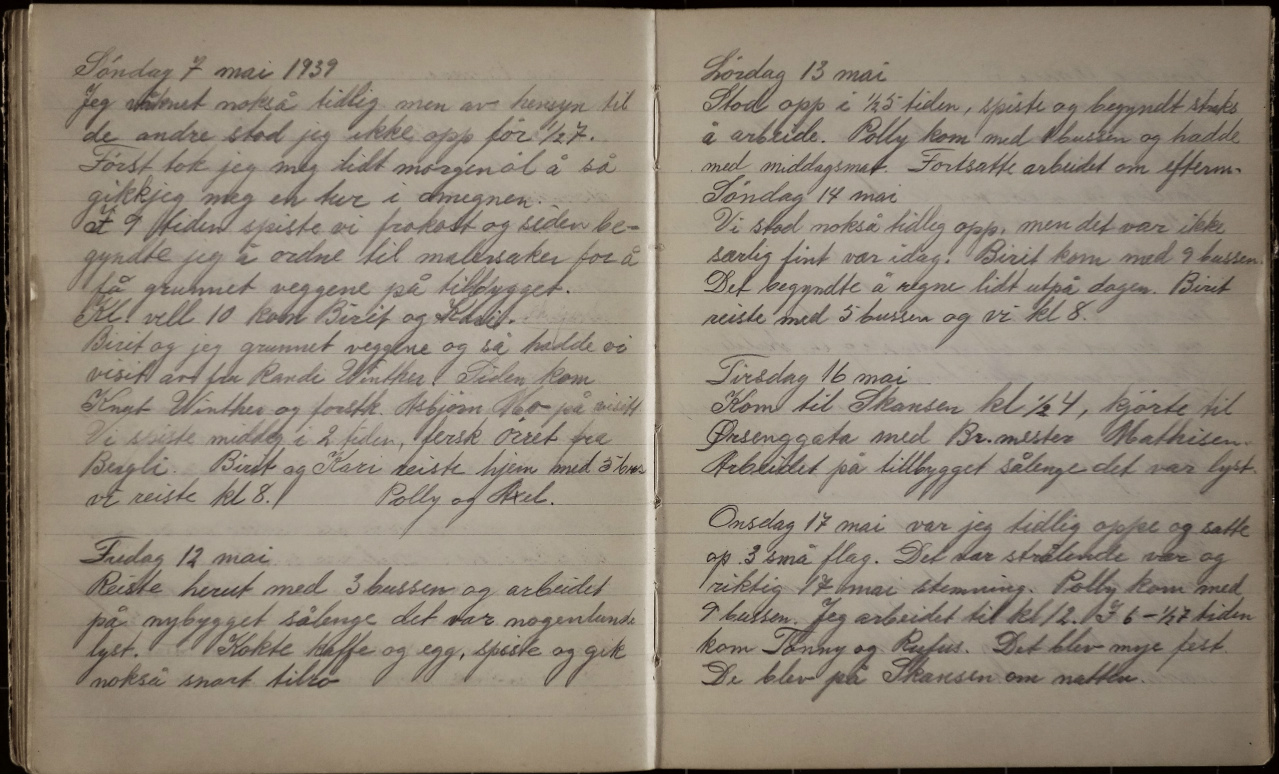 Søndag 7 mai 1939
Jeg våknet nokså tidlig men av hensyn til
de andre stod jeg ikke opp før ½7.
Først tok jeg meg lidt morgenøl å så
gikkjeg meg en tur i omegnen.
I 9 tiden spiste vi frokost og siden be-
gyndte jeg å ordne til malersaker for å
få grunnet veggene på tilbygget.
Kl. vell 10 kom Birit og Kari.
Birit og jeg grunnet veggene og så hadde vi
visit av fru Randi Winther. Siden kom
Knut Winther og forstk. Asbjørn Mo på visitt
Vi spiste middag i 2 tiden, fersk ørret fra
Bergli. Birit og Kari reiste hjem med 5 bus
vi reiste kl 8. Polly og Axel.
Fredag 12 mai
Reiste herut med 3 bussen og arbeidet
på nybygget sålenge det var nogenlunde
lyst. Kokte kaffe og egg, spiste og gik
nokså snart tilro
Lørdag 13 mai
Stod opp i ½5 tiden, spiste og begyndt straks
å arbeide. Polly kom med 1 bussen og hadde
med middagsmat. Fortsatte arbeidet om efterm.
Søndag 14 mai
Vi stod nokså tidleg opp, men det var ikke
særlig fint vær idag. Birit kom med 9 bussen.
Det begyndte å regne lidt utpå dagen. Birit
reiste med 5 bussen og vi kl 8.
Tirsdag 16 mai
Kom til Skansen kl ½4, kjørte til
Ørsenggata med Br.mester Mathisen.
Arbeidet på tillbygget sålenge det var lyst.
Onsdag 17 mai var jeg tidlig oppe og satte
op 3 små flag. Det var strålende vær og
riktig 17 mai stemning. Polly kom med
9 bussen. Jeg arbeidet til kl 12. I 6 – ½7 tiden
kom Tonny og Rufus. Det blev mye fest.
De blev på Skansen om natten.